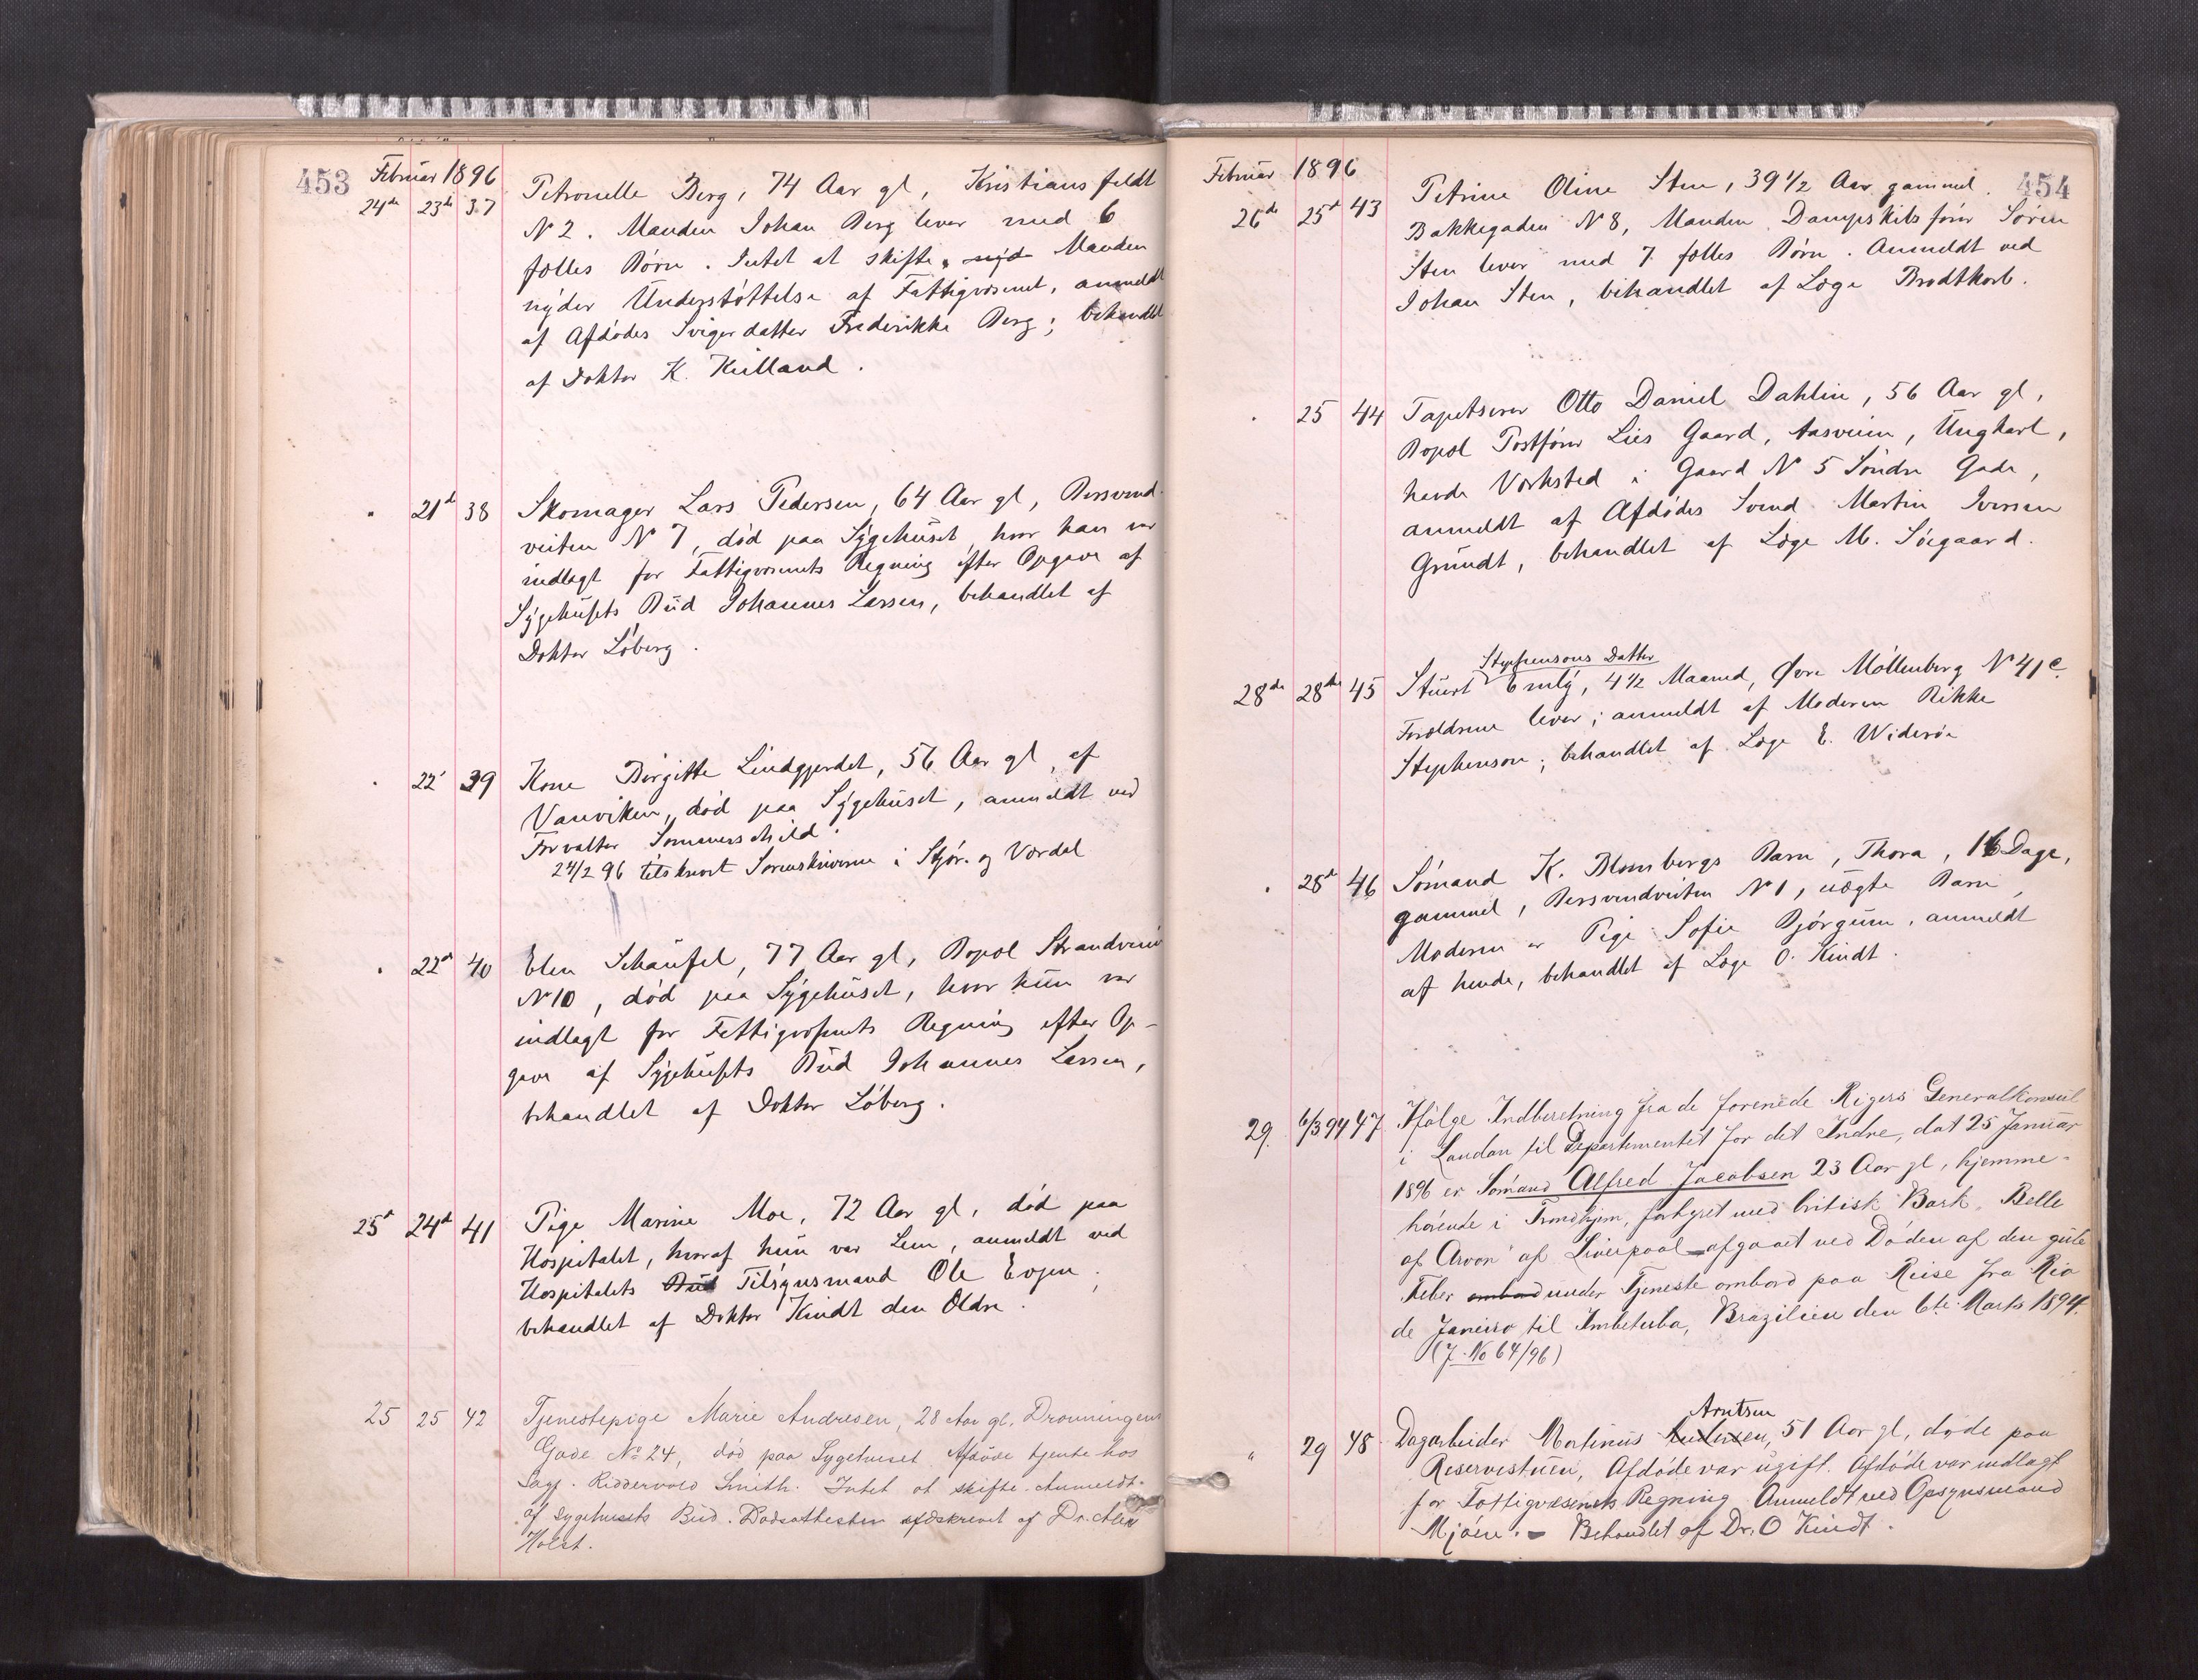 453
Februar 1896
24de 23de 37 Petronelle Berg, 74 Aar gl, Kristiansfeldt
N 2. Manden Johan Berg lever med 6
fælles Børn. Intet at skifte, nyd Manden
nyder Understøttelse af Fattigvæsenet, anmeldt
af Afdødes Svigerdatter Frederikke Berg; behandlet
af Doktor K. Kielland.
" 21d 38 Skomager Lars Pedersen, 64 Aar gl, Bersvend-
veiten N 7, død paa Sygehuset, hvor han var
indlagt for Fattigvæsenets Regning efter Opgave af
Sygehusets Bud Johannes Larsen, behandlet af
Doktor Løberg.
" 22' 39 Kone Birgitte Lindgjerdet, 56 Aar gl, af
Vanviken, død paa Sygehuset, anmeldt ved
Forvalter Sommerschild.
24/2 96 tilskrevet Sorenskriveren i Stjør- og Værdal
" 22d 40 Elen Schaufel, 77 Aar gl, Bopæl Strandveien
N 10, død paa Sygehuset, hvor hun var
indlagt for Fattigvæsenets Regning efter Op-
gave af Sygehusets Bud Johannes Larsen,
behandlet af Doktor Løberg.
25d 24d 41 Pige Marine Moe, 72 Aar gl, død paa
Hospitalet, hvoraf hun var Lem, anmeldt ved
Hospitalets Bud Tilsynsmand Ole Evjen;
behandlet af Doktor Kindt den Ældre.
25 25 42 Tjenestepige Marie Andresen, 28 Aar gl. Dronningens
Gade No 24, død paa Sygehuset. Afdøde tjente hos
Sagf. Riddervold Smith. Intet at skifte. Anmeldt
af Sygehusets Bud. Dødsattesten udskrevet af Dr. Alex
Holst.
454
Februar 1896
26de 25d 43 Petrine Oline Sten, 39 1/2 Aar gammel.
Bakkegaden N 8, Manden Dampskibsfører Søren
Sten lever med 7 fælles Børn. Anmeldt ved
Johan Sten, behandlet af Læge Brodtkorb.
" 25 44 Tapetserer Otto Daniel Dahlin, 56 Aar gl,
Bopæl Postfører Lies Gaard, Aasveien, Ungkarl,
havde Værksted i Gaard N 5 Søndre Gade,
anmeldt af Afdødes Svend Martin Iversen
Grundt, behandlet af Læge M. Søegaard.
Stephensons Datter
28de 28de 45 Stuert Emly, 4 1/2 Maaned, Øvre Møllenberg N 41 c.
Forældrene lever; anmeldt af Moderen Rikke
Stephenson; behandlet af Læge E. Widerøe
" 28d 46 Sømand K. Blombergs Barn, Thora, 16 Dage,
gammel, Bersvendveiten N 1, uægte Barn,
Moderen er Pige Sofie Bjørgum, anmeldt
af hende, behandlet af Læge O. Kindt.
29. 6/3 94 47 Ifølge Indberetning fra de forenede Rigers Generalkonsul
i London til Departementet for det Indre, dat 25 Januar
1896 er Sømand Alfred Jacobsen 23 Aar gl, hjemme-
hørende i Trondhjem, forhyret med britisk Bark "Belle
of Arvon" af Liverpool afgaaet ved Døden af den gule
Feber ombord under Tjeneste ombord paa Reise fra Rio
de Janeiro til Imbetuba, Brazilien den 6te Marts 1894.
(J. No 64/96)
Arntsen
" 29 48 Dagarbeider Martinus Andersen, 51 Aar gl, døde paa
Reservestuen, Afdøde var ugift. Afdøde var indlagt
for Fattigvæsenets Regning. Anmeldt ved Opsynsmand
Mjøen. - Behandlet af Dr. O Kindt.